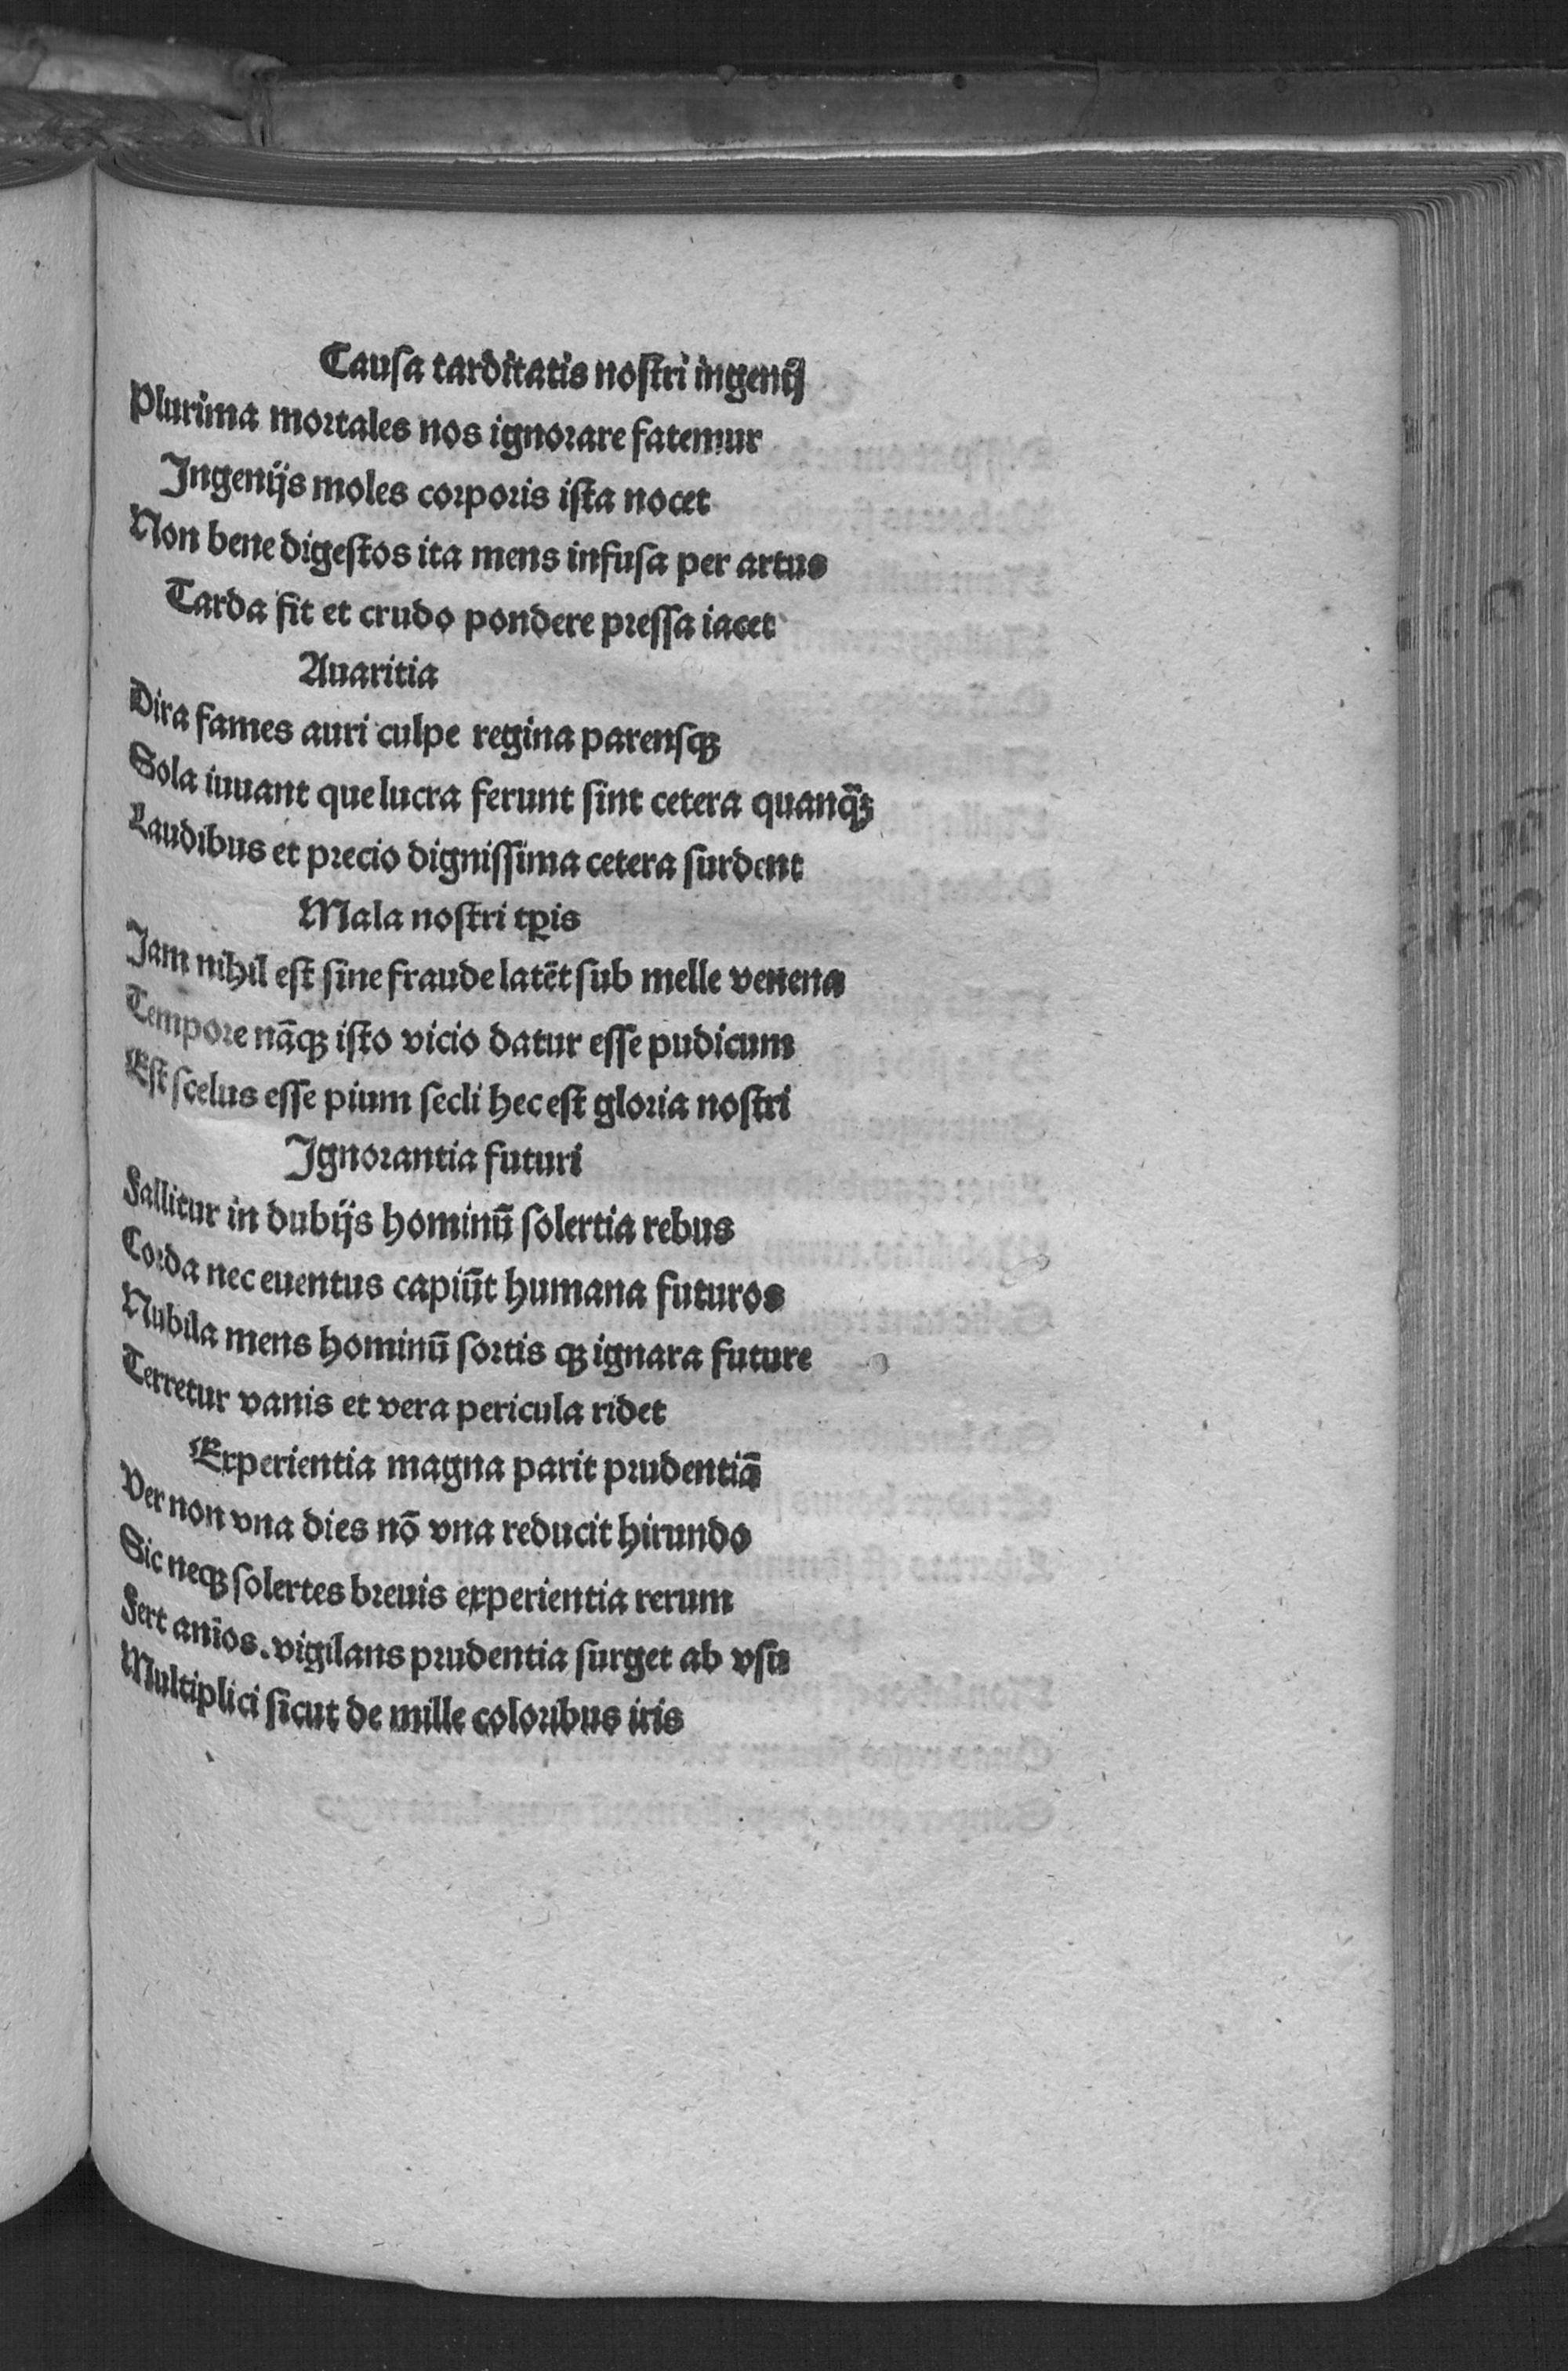 Causa tarditatis nostri ingenij
Plurima mortales nos ignorare fatemur
Ingenijs moles corporis ista nocet
Non bene digestos ita mens infusa per artus
Tarda fit et crudo pondere pressa iacet
Auaritia
Dira fames auri culpe regina parensqꝫ
Sola iuuant que lucra ferunt sint cetera quanq̃ꝫ
Laudibus et precio dignissima cetera surdent
Mala nostri tꝑis
Jam nihil est sine fraude latēt sub melle venena
Tempore nāqꝫ isto vicio datur esse pudicum
Est scelus esse pium secli hec est gloria nostri
Ignorantia futuri
Fallitur in dubijs hominū solertia rebus
Corda nec euentus capiūt humana futuros
Nubila mens hominū sortis qꝫ ignara future
Terretur vanis et vera pericula ridet
Experientia magna parit prudentiā
Ver non vna dies nō vna reducit hirundo
Sic neqꝫ solertes breuis experientia rerum
Fert anīos. vigilans prudentia surget ab vsu
Multiplici sicut de mille coloribus iris